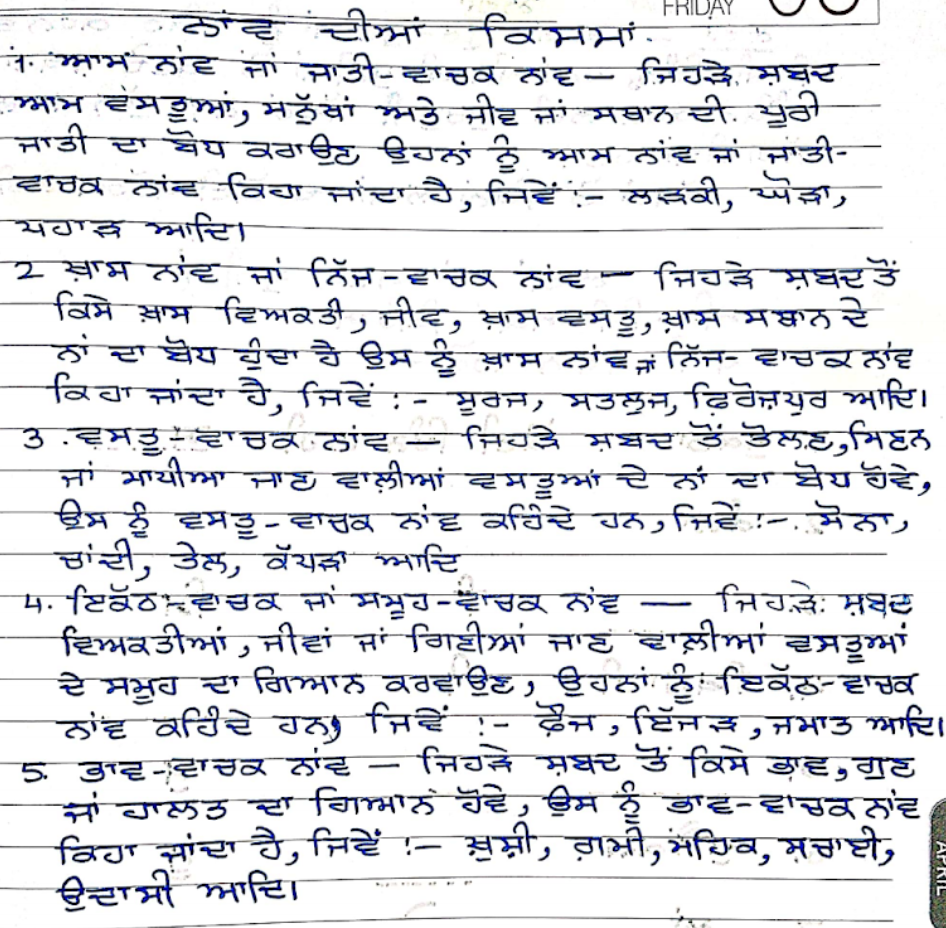 FRIDAY
ਨਾਂਵ ਦੀਆਂ ਕਿਸਮਾਂ.
1. ਆਮ ਨਾਂਵ ਜਾਂ ਜਾਤੀ-ਵਾਚਕ ਨਾਂਵ — ਜਿਹੜੇ ਸ਼ਬਦ
ਆਮ ਵਸਤੂਆਂ, ਮਨੁੱਖਾਂ ਅਤੇ ਜੀਵ ਜਾਂ ਸਥਾਨ ਦੀ ਪੂਰੀ
ਜਾਤੀ ਦਾ ਬੋਧ ਕਰਾਉਣ ਉਹਨਾਂ ਨੂੰ ਆਮ ਨਾਂਵ ਜਾਂ ਜਾਤੀ-
ਵਾਚਕ ਨਾਂਵ ਕਿਹਾ ਜਾਂਦਾ ਹੈ, ਜਿਵੇਂ :- ਲੜਕੀ, ਘੋੜਾ,
ਪਹਾੜ ਆਦਿ।
2 ਖ਼ਾਸ ਨਾਂਵ ਜਾਂ ਨਿੱਜ-ਵਾਚਕ ਨਾਂਵ — ਜਿਹੜੇ ਸ਼ਬਦ ਤੋਂ
ਕਿਸੇ ਖ਼ਾਸ ਵਿਅਕਤੀ, ਜੀਵ, ਖ਼ਾਸ ਵਸਤੂ, ਖ਼ਾਸ ਸਥਾਨ ਦੇ
ਨਾਂ ਦਾ ਬੋਧ ਹੁੰਦਾ ਹੈ ਉਸ ਨੂੰ ਖ਼ਾਸ ਨਾਂਵ ਜਾਂ ਨਿੱਜ-ਵਾਚਕ ਨਾਂਵ
ਕਿਹਾ ਜਾਂਦਾ ਹੈ, ਜਿਵੇਂ :- ਸੂਰਜ, ਸਤਲੁਜ, ਫ਼ਿਰੋਜ਼ਪੁਰ ਆਦਿ।
3. ਵਸਤੂ-ਵਾਚਕ ਨਾਂਵ — ਜਿਹੜੇ ਸ਼ਬਦ ਤੋਂ ਤੋਲਣ, ਮਿਣਨ
ਜਾਂ ਮਾਪੀਆ ਜਾਣ ਵਾਲ਼ੀਆਂ ਵਸਤੂਆਂ ਦੇ ਨਾਂ ਦਾ ਬੋਧ ਹੋਵੇ,
ਉਸ ਨੂੰ ਵਸਤੂ-ਵਾਚਕ ਨਾਂਵ ਕਹਿੰਦੇ ਹਨ, ਜਿਵੇਂ :- ਸੋਨਾ,
ਚਾਂਦੀ, ਤੇਲ, ਕੱਪੜਾ ਆਦਿ
4. ਇਕੱਠ-ਵਾਚਕ ਜਾਂ ਸਮੂਹ-ਵਾਚਕ ਨਾਂਵ — ਜਿਹੜੇ ਸ਼ਬਦ
ਵਿਅਕਤੀਆਂ, ਜੀਵਾਂ ਜਾਂ ਗਿਣੀਆਂ ਜਾਣ ਵਾਲ਼ੀਆਂ ਵਸਤੂਆਂ
ਦੇ ਸਮੂਹ ਦਾ ਗਿਆਨ ਕਰਵਾਉਣ, ਉਹਨਾਂ ਨੂੰ ਇਕੱਠ-ਵਾਚਕ
ਨਾਂਵ ਕਹਿੰਦੇ ਹਨ, ਜਿਵੇਂ :- ਫ਼ੌਜ, ਇੱਜੜ, ਜਮਾਤ ਆਦਿ।
5. ਭਾਵ-ਵਾਚਕ ਨਾਂਵ — ਜਿਹੜੇ ਸ਼ਬਦ ਤੋਂ ਕਿਸੇ ਭਾਵ, ਗੁਣ
ਜਾਂ ਹਾਲਤ ਦਾ ਗਿਆਨ ਹੋਵੇ, ਉਸ ਨੂੰ ਭਾਵ-ਵਾਚਕ ਨਾਂਵ
ਕਿਹਾ ਜਾਂਦਾ ਹੈ, ਜਿਵੇਂ :- ਖ਼ੁਸ਼ੀ, ਗ਼ਮੀ, ਮਹਿਕ, ਸਚਾਈ,
ਉਦਾਸੀ ਆਦਿ।
APRIL